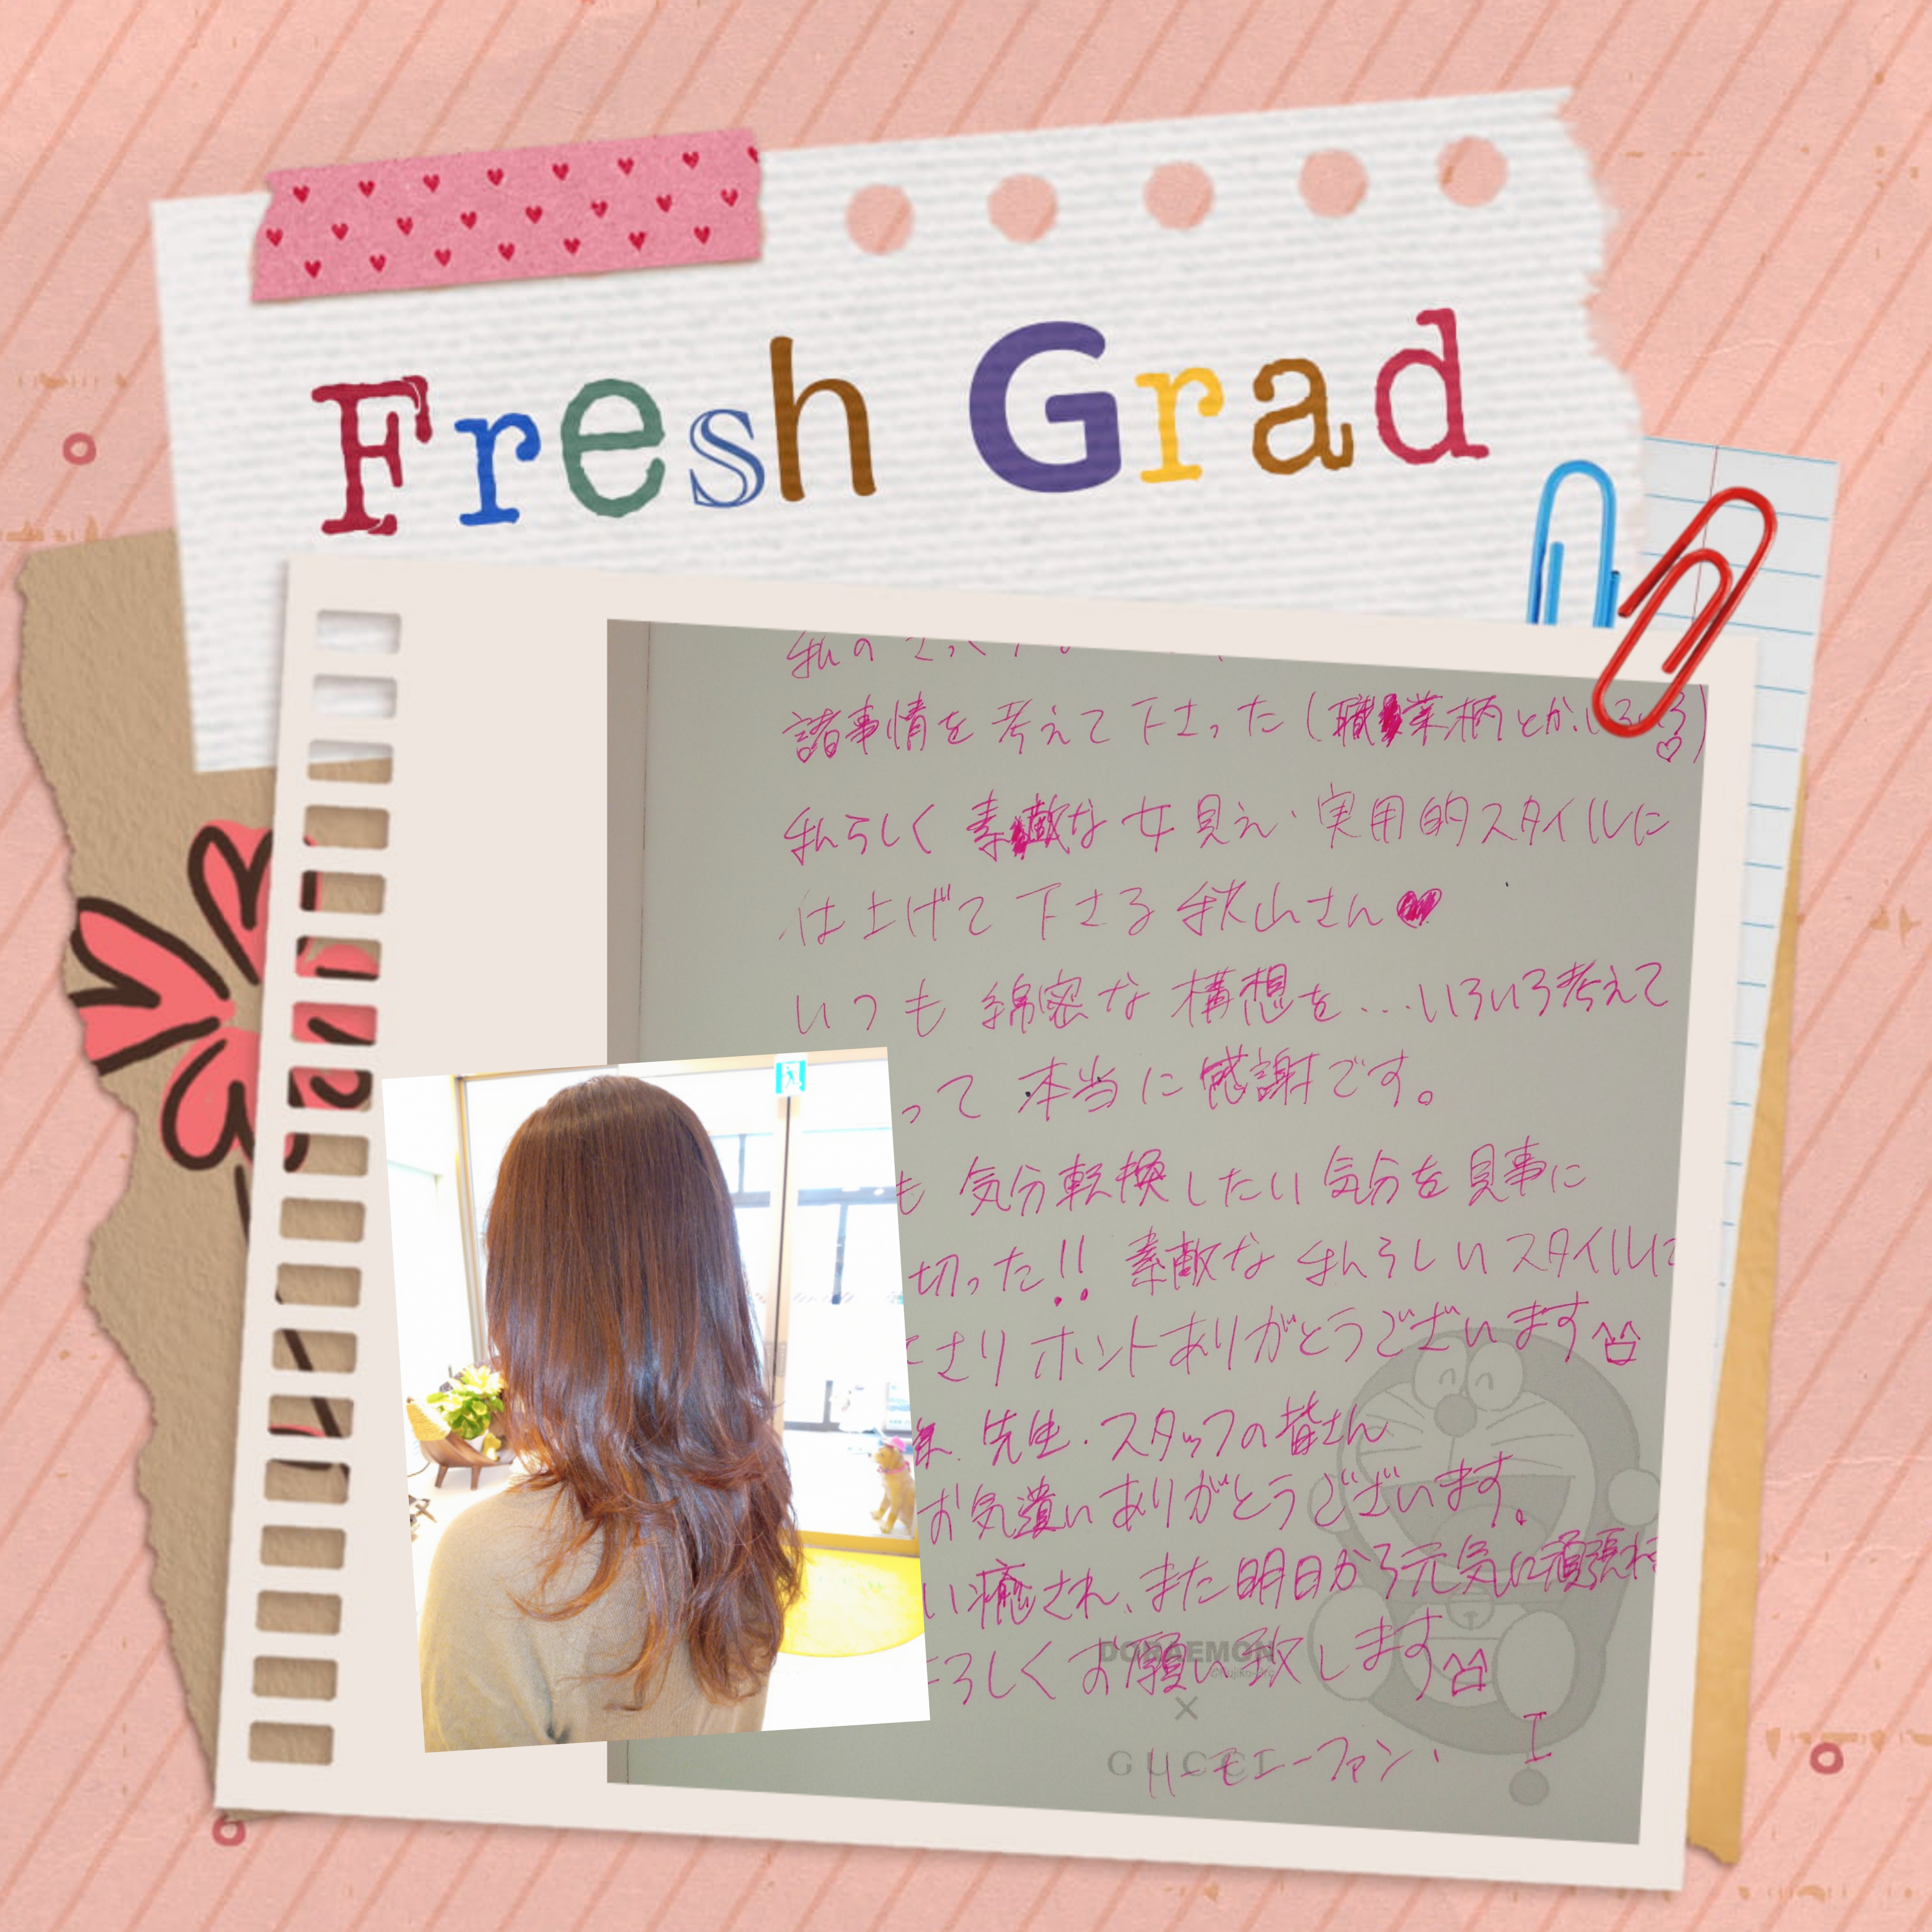 Fresh Grad
私の
諸事情を考えて下さった(職業柄とか、いろいろ♡)
私らしく素敵な女見え・実用的スタイルに
仕上げて下さる秋山さん♥
いつも綿密な構想を...いろいろ考えて
って本当に感謝です。
も気分転換したい気分を見事に
切った!!素敵な私らしいスタイルに
さりホントありがとうございます
先生・スタッフの皆さん
お気遣いありがとうございます。
い癒され、また明日から元気に頑張れ
ろしくお願い致します
DORAEMON
×
GUCCI
ハーモニーファン・ I